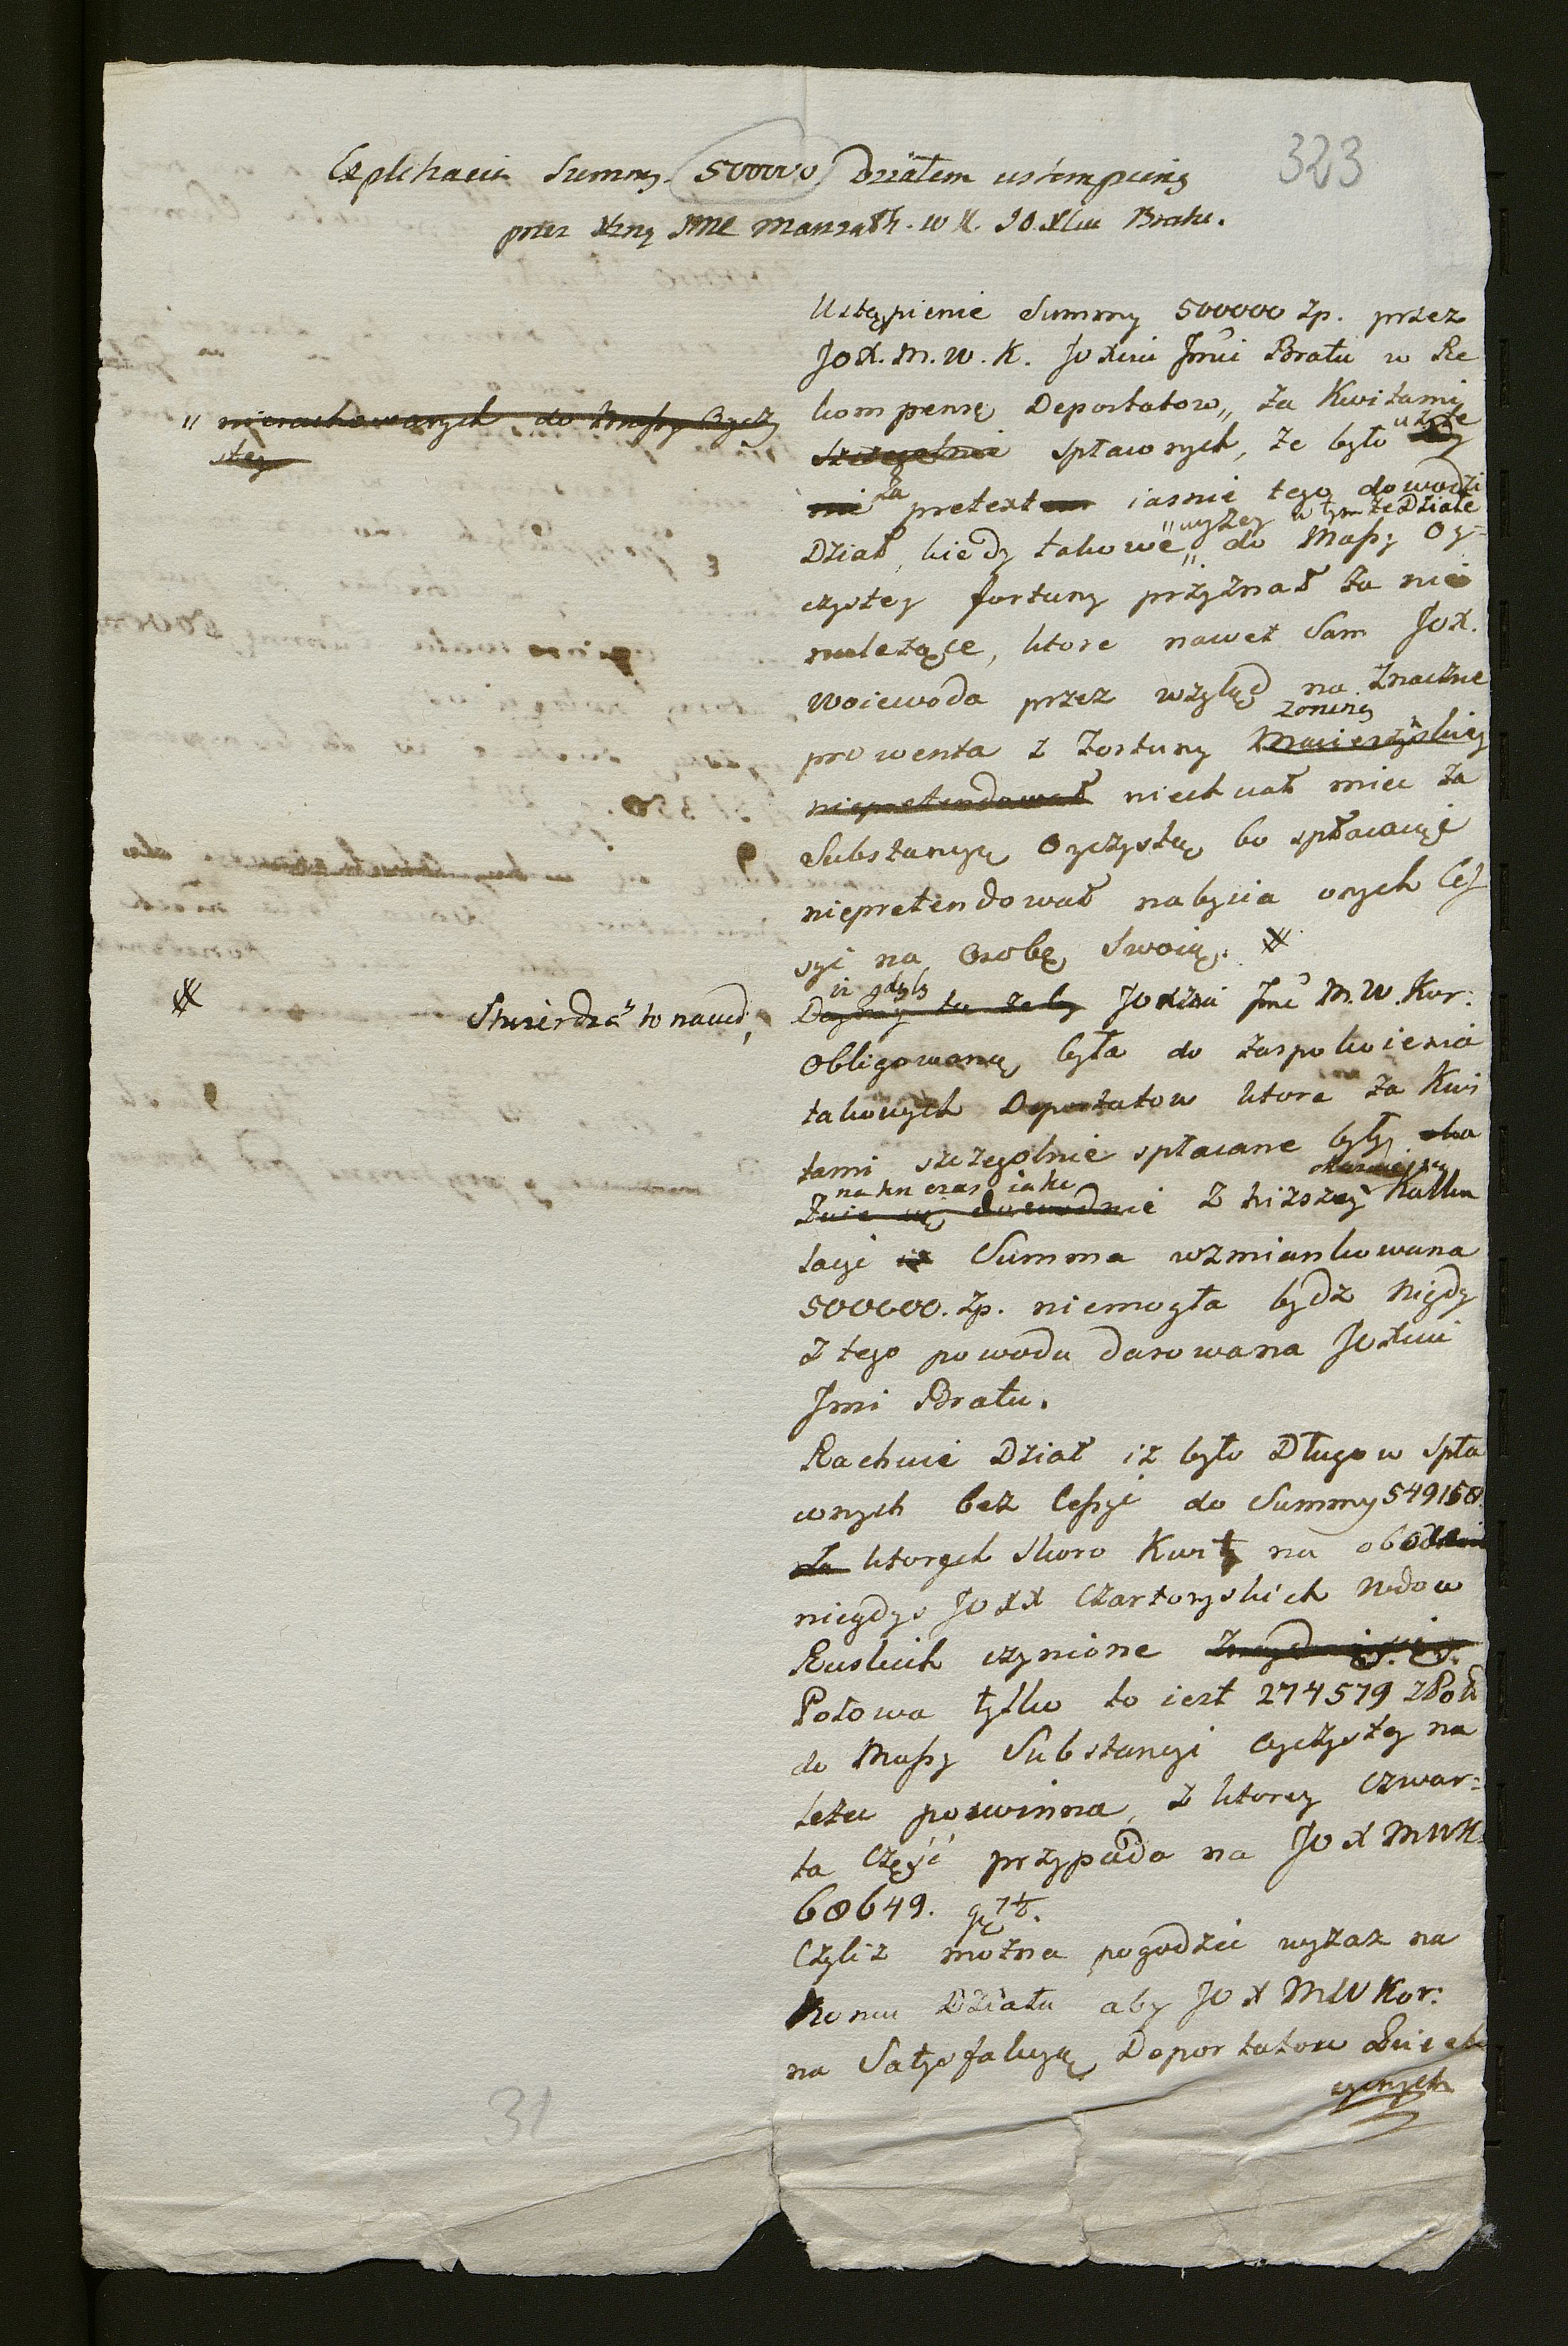 323
Explikacia Summy 500000 Działem ustąmpioney
przez Xzną JMC Marszałk. W K. JO. Xciu Bratu.
Ustąpienie Summy 500000 zp. przez
JOX. M. W. K. JOXciu Jmći Bratu w Re
kompensę Deportatow „ za Kwitami
„ nierachowanych do Massy Oyczy
stey
szczegulnie spłaconych, że było użyte
za pretext iasnie tego dowodzi
wyżey w tymże Dziale
Dział, kiedy takowe „ do Massy Oy=
czystey fortuny przyznał za nie
należące, ktore nawet Sam JOX.
Woiewoda przez wzgląd na znaczne
żoniney
prowenta z Fortuny Macierzyskiey
niepretendował niechciał mieć za
Substancyą Oyczystą, bo spłacaiąc
niepretendował nabycia onych Ces
syi na Osobę Swoią. #
# Stwierdza to nawet,
iż gdyby
JOXżna Jmć M. W. Kor:
Obligowaną była do zaspokoienia
takowych Deportatow ktore za Kwi
tami szczegolnie spłacane były oka
na ten czas iako
zuie się dowodnie z niższey Kalku
lacyi iż Summa wzmiankowana
500000. zp. niemogła bydz nigdy
z tego powodu darowana JOXciu
Jmci Bratu.
Rachuie Dział iż było Długow spła
conych bez Cessyi do Summy 549158.
ktorych skoro Kwity na oboie
niegdys JOXX Czartoryskich Wdow
Ruskich czynione
Połowa tylko to iest 274579 zPol
do Massy Substancyi Oyczystey na
leżeć powinna, z ktorey Czwar=
ta Część przypada na JOX MWK.
68649. gr 7½.
Czyliż można pogodzić wyraz na
koncu Działu aby JOX MWKor:
na Satysfakcyą Deportatow Dziedz
icznych
31